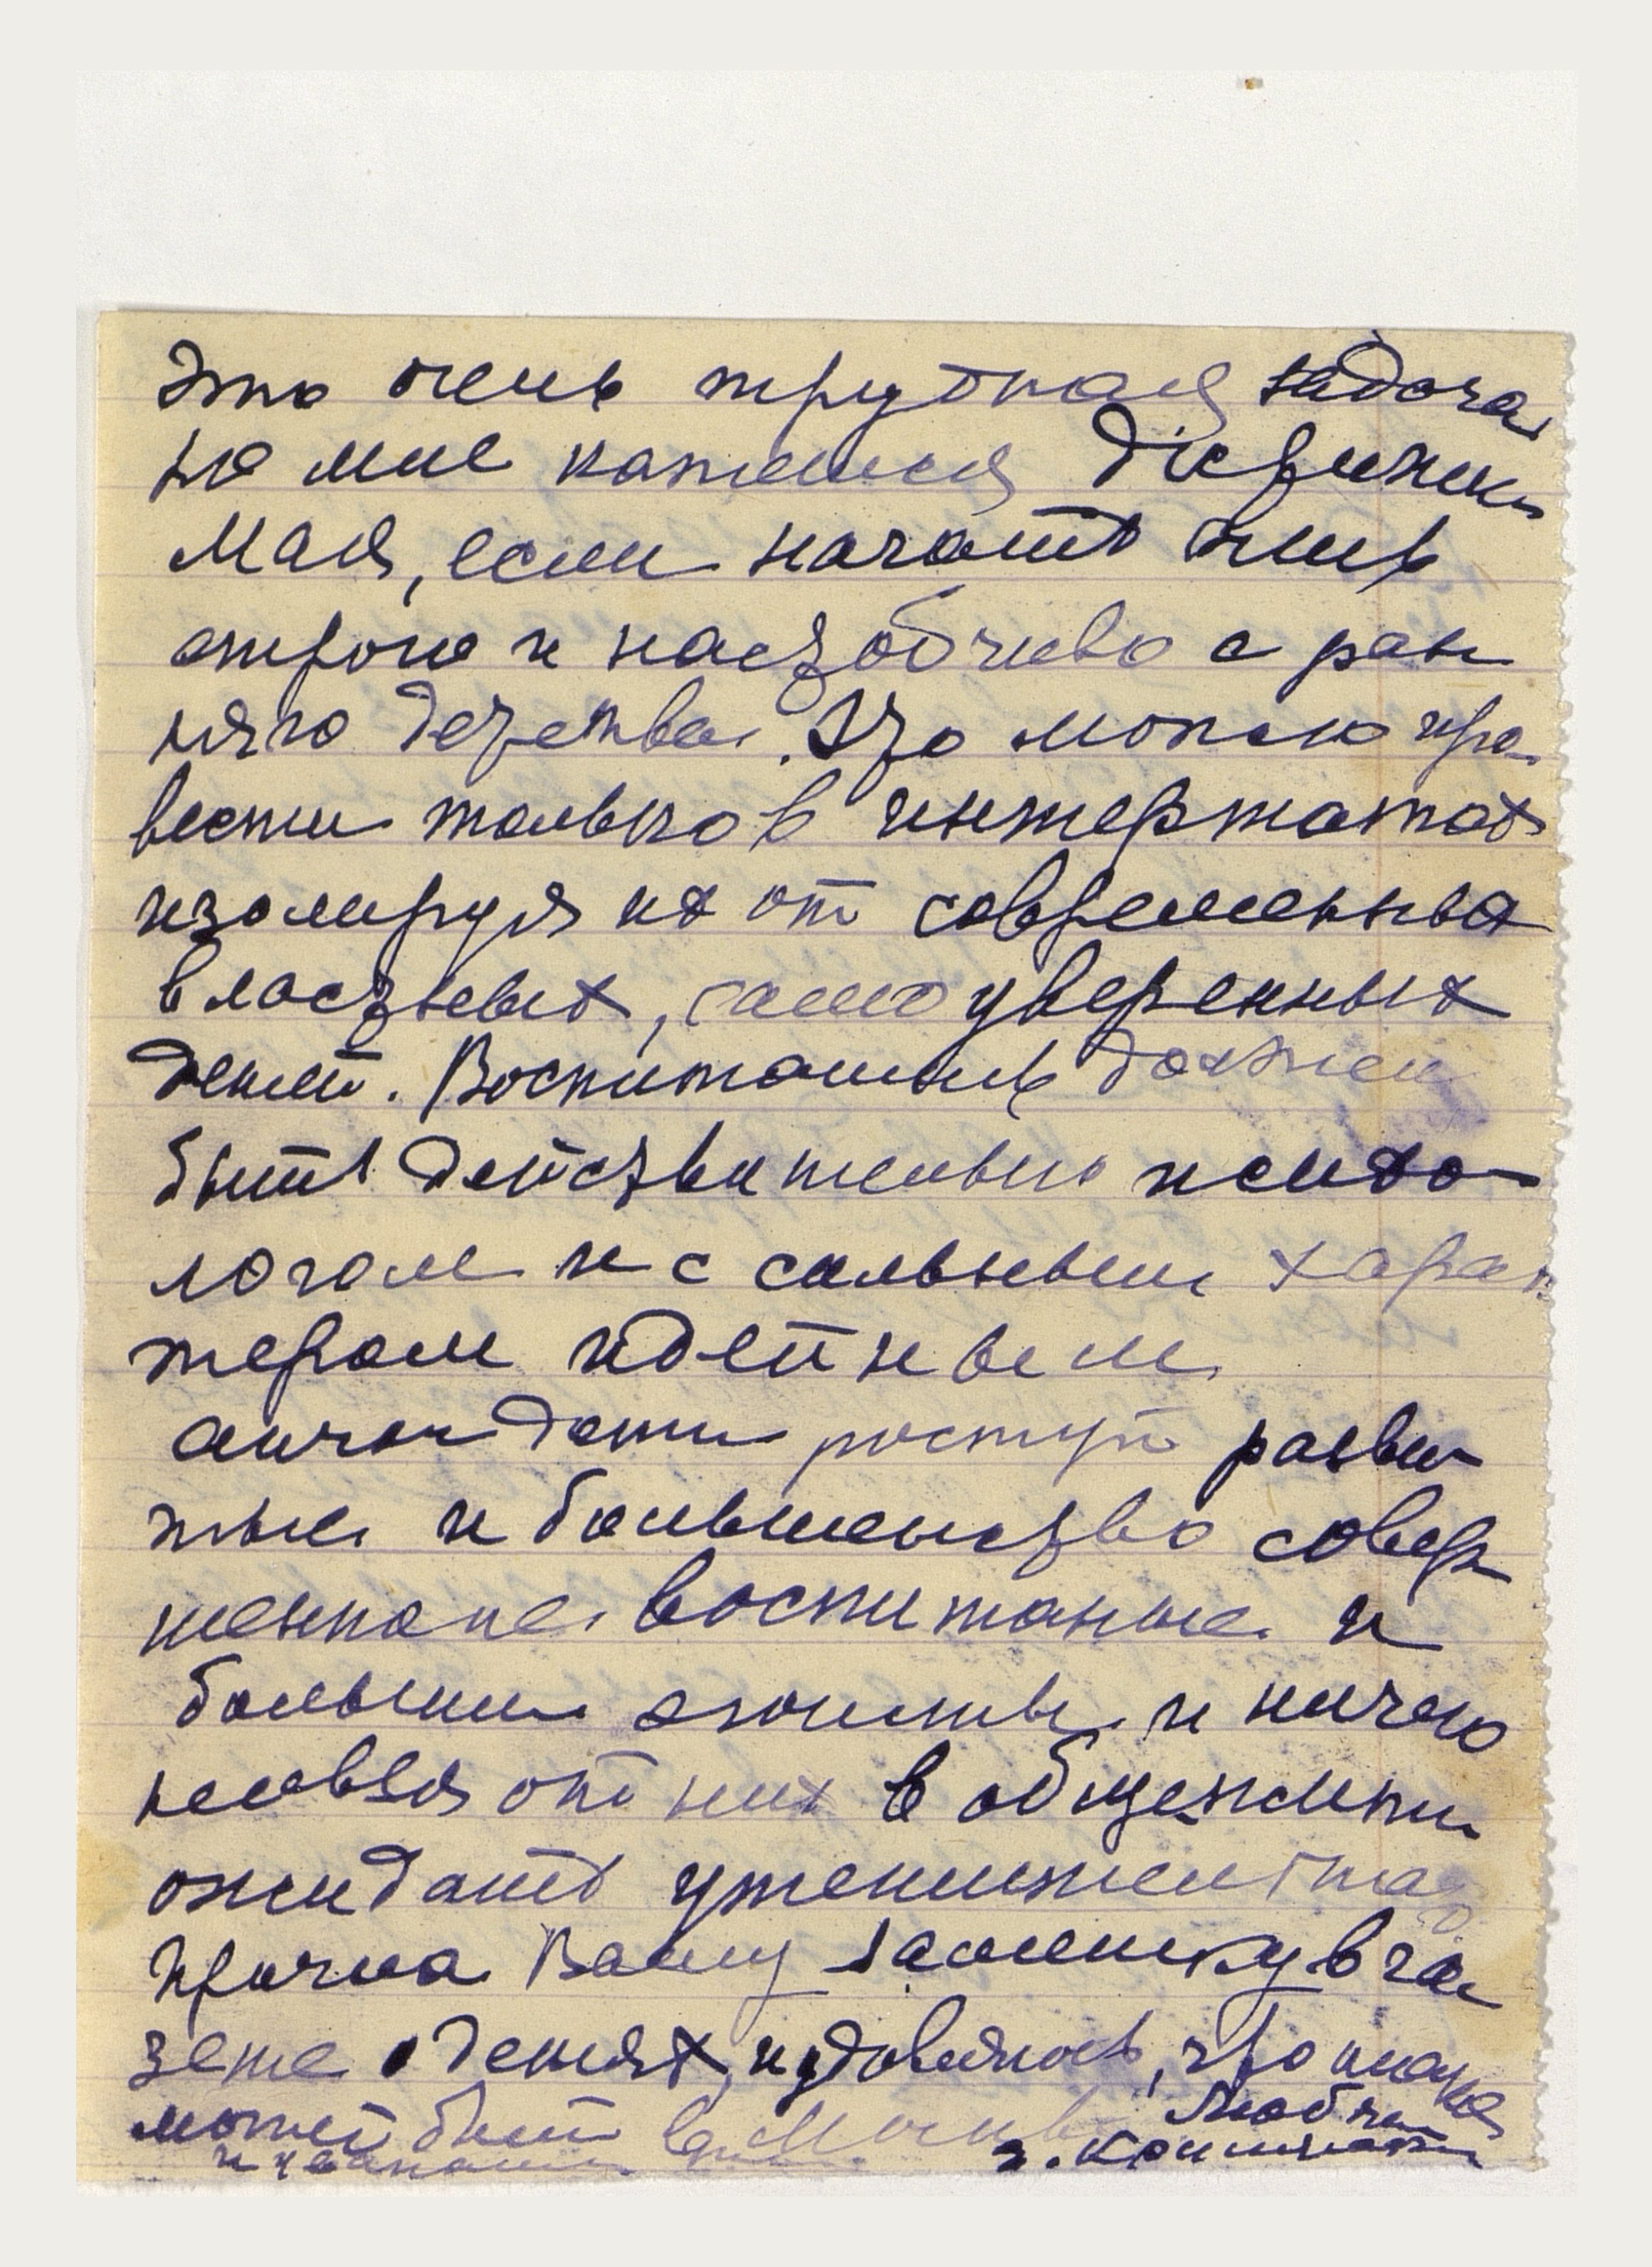 Это очень трудная задача
но мне кажется достижи
мая, если начать очень
строго и настойчиво с ран
няго детства. Это можно про
вести только в интернатах
изолируя их от современных
властных, самоуверенных
детей. Воспитатель должен
быть действительно психо
логом и с сильным харак
тером идейным
дети ростут разви
тые и большинство совер
шенно не воспитаные и
большие эгоисты и ничего
нельзя от них в общежитии
ожидать
Прочла Вашу заметку в га
зете о детях, и удивилась, что
может быть в
г.